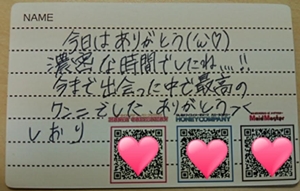 NAME
今日はありがとう('ω'♡)
濃密な時間でしたね、、、!!
今まで出会った中で最高の
ワンニでした、ありがとうっく
しおり
HONEYCOMPANY
MaidMaster